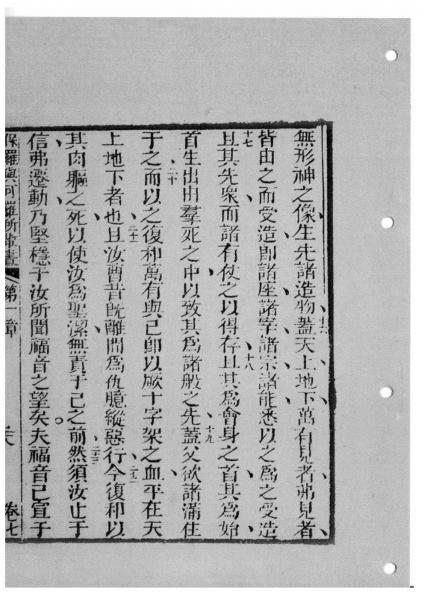 無形神之像生先諸造物蓋天上地下萬有見者弗見者
十六
皆由之而受造即諸座諸宰諸宗諸能悉以之為之受造
十七
且其先衆而諸有仗之以得存且其為會身之首其為始
十八
首生出由羣死之中以致其為諸般之先蓋父欲諸滿住
十九
于之而以之復和萬有與己即以厥十字架之血平在天
二十
上地下者也且汝曹昔既離間為仇臆縱惡行今復和以
二十一
其肉軀之死以使汝為聖潔無責于己之前然須汝止于
二十二
二十三
信弗遷動乃堅穩于汝所聞福音之望矣夫福音已宣于
保羅與可羅所輩書 第一章 卷七